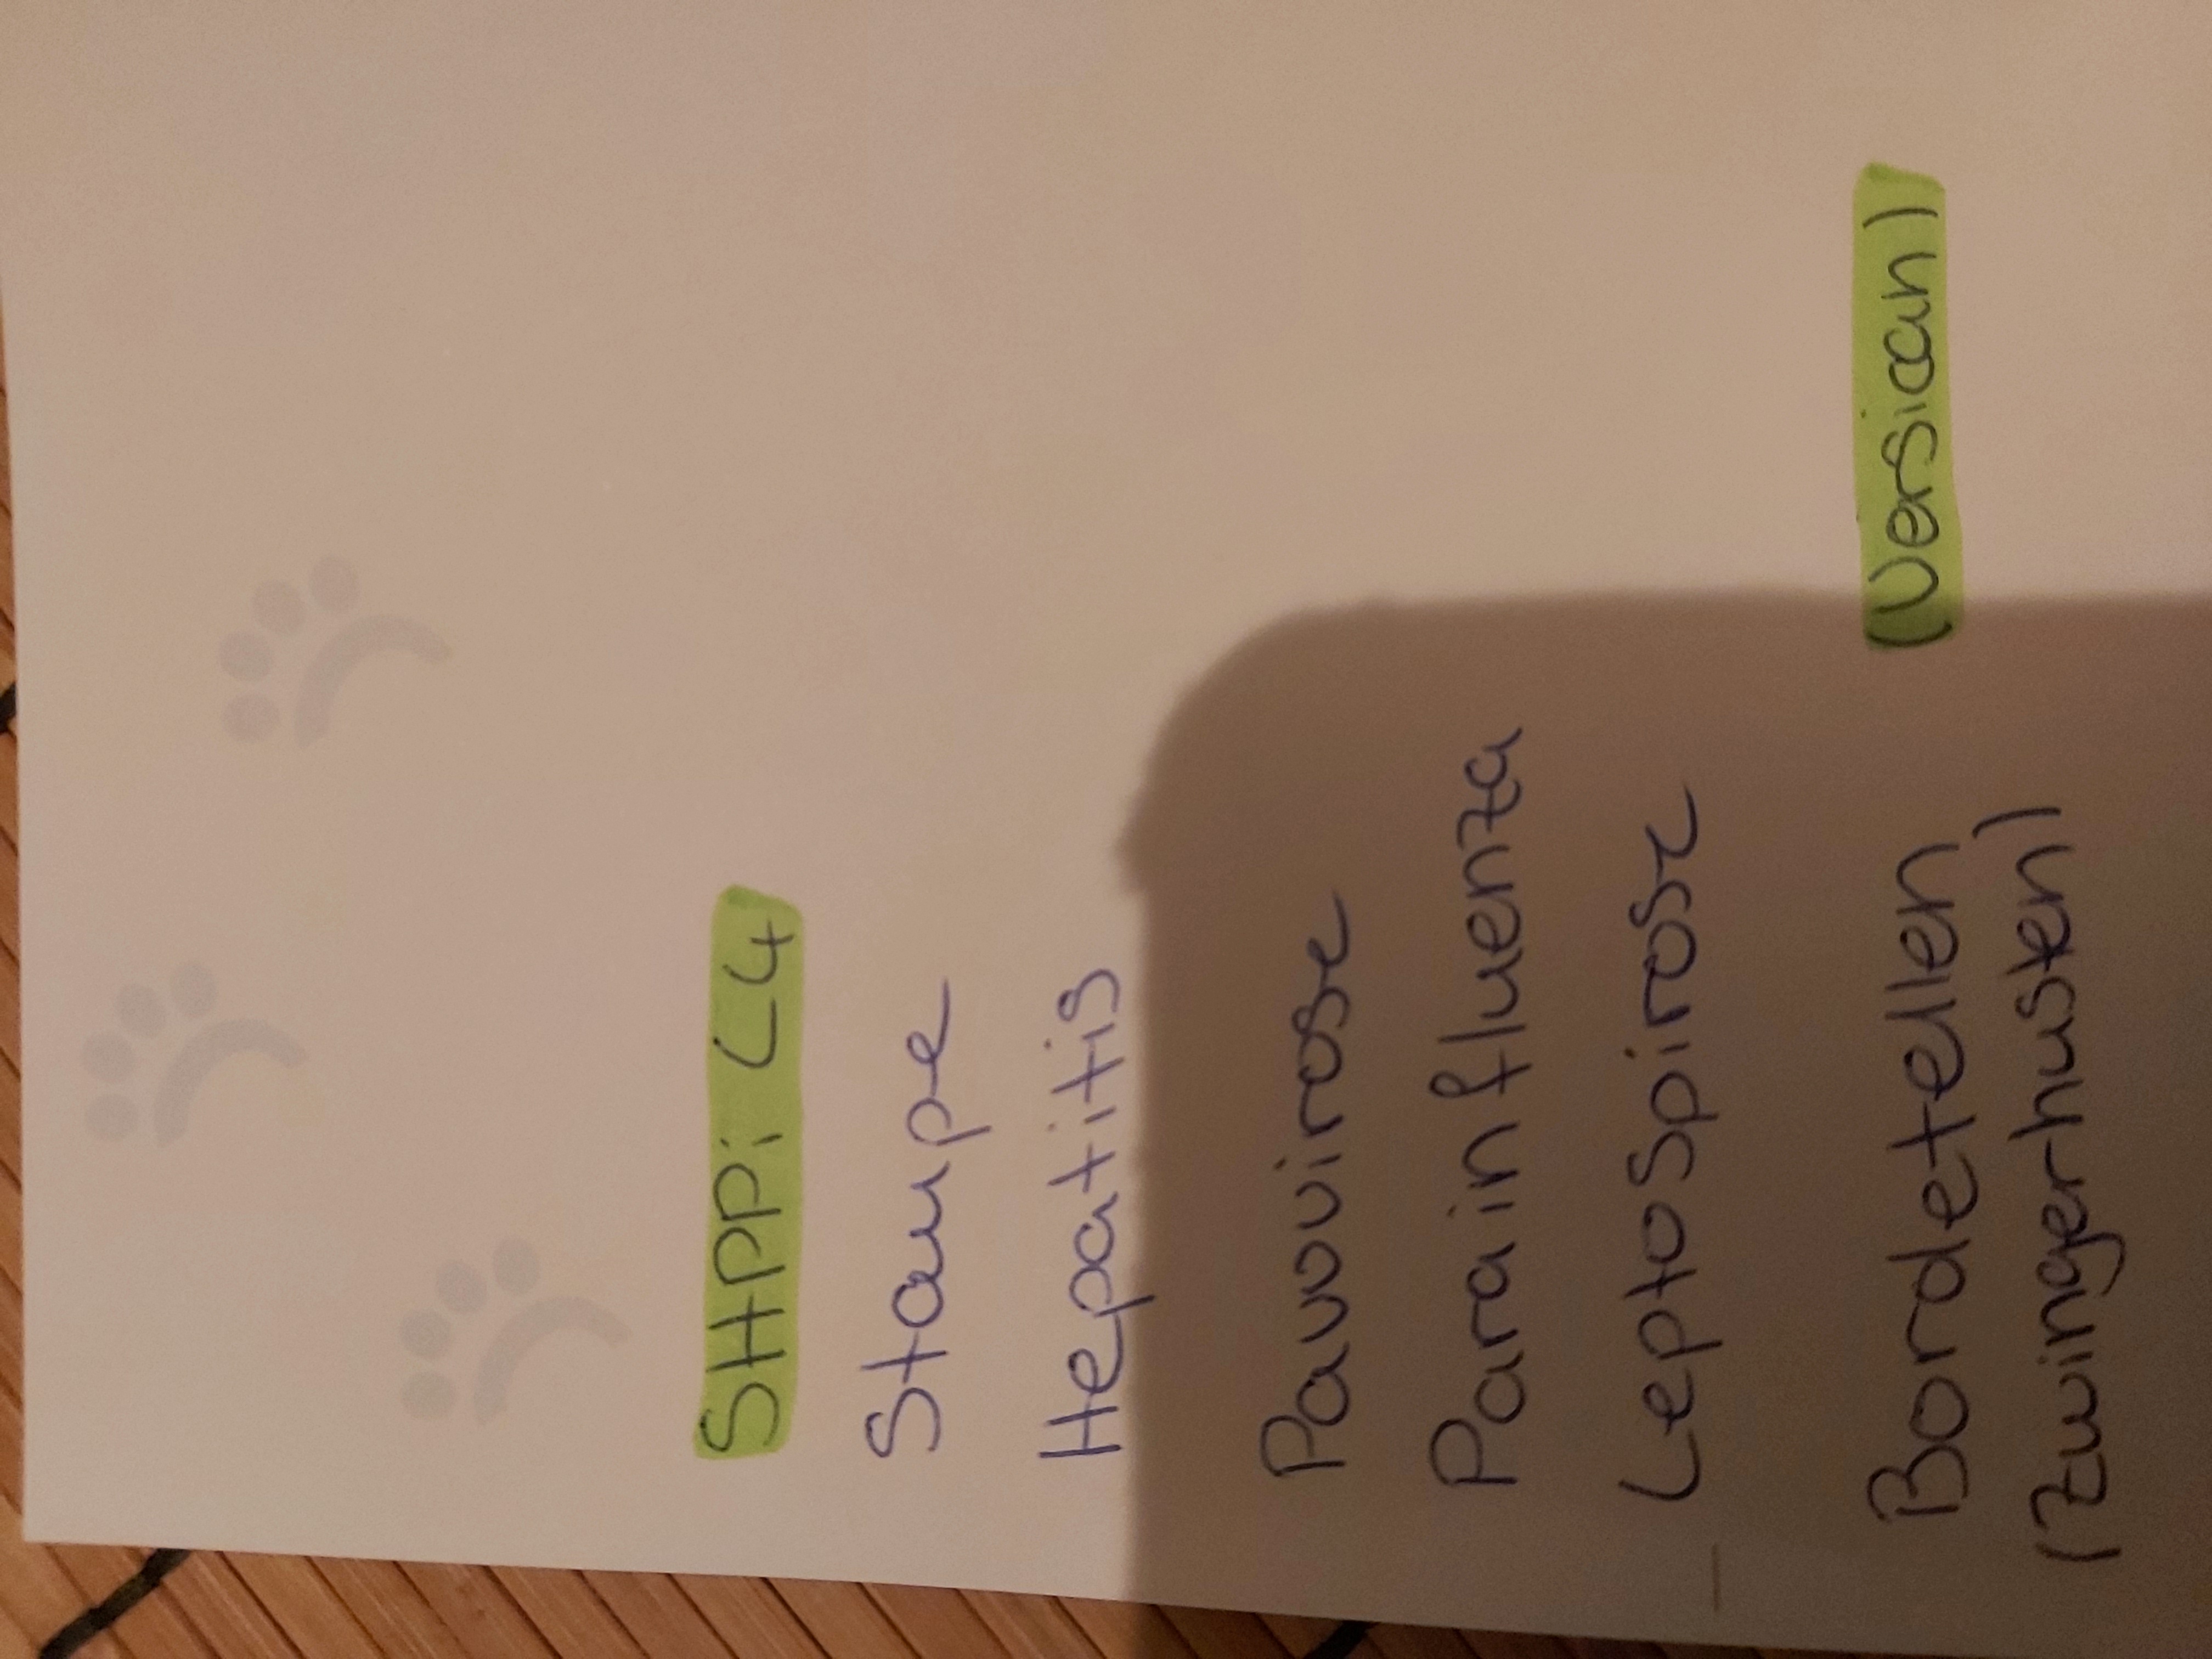 SHPPi L4
Staupe
Hepatitis
Pavovirose
Parainfluenza
Leptospirose
Bordetellen (Versican)
(Zwingerhusten)